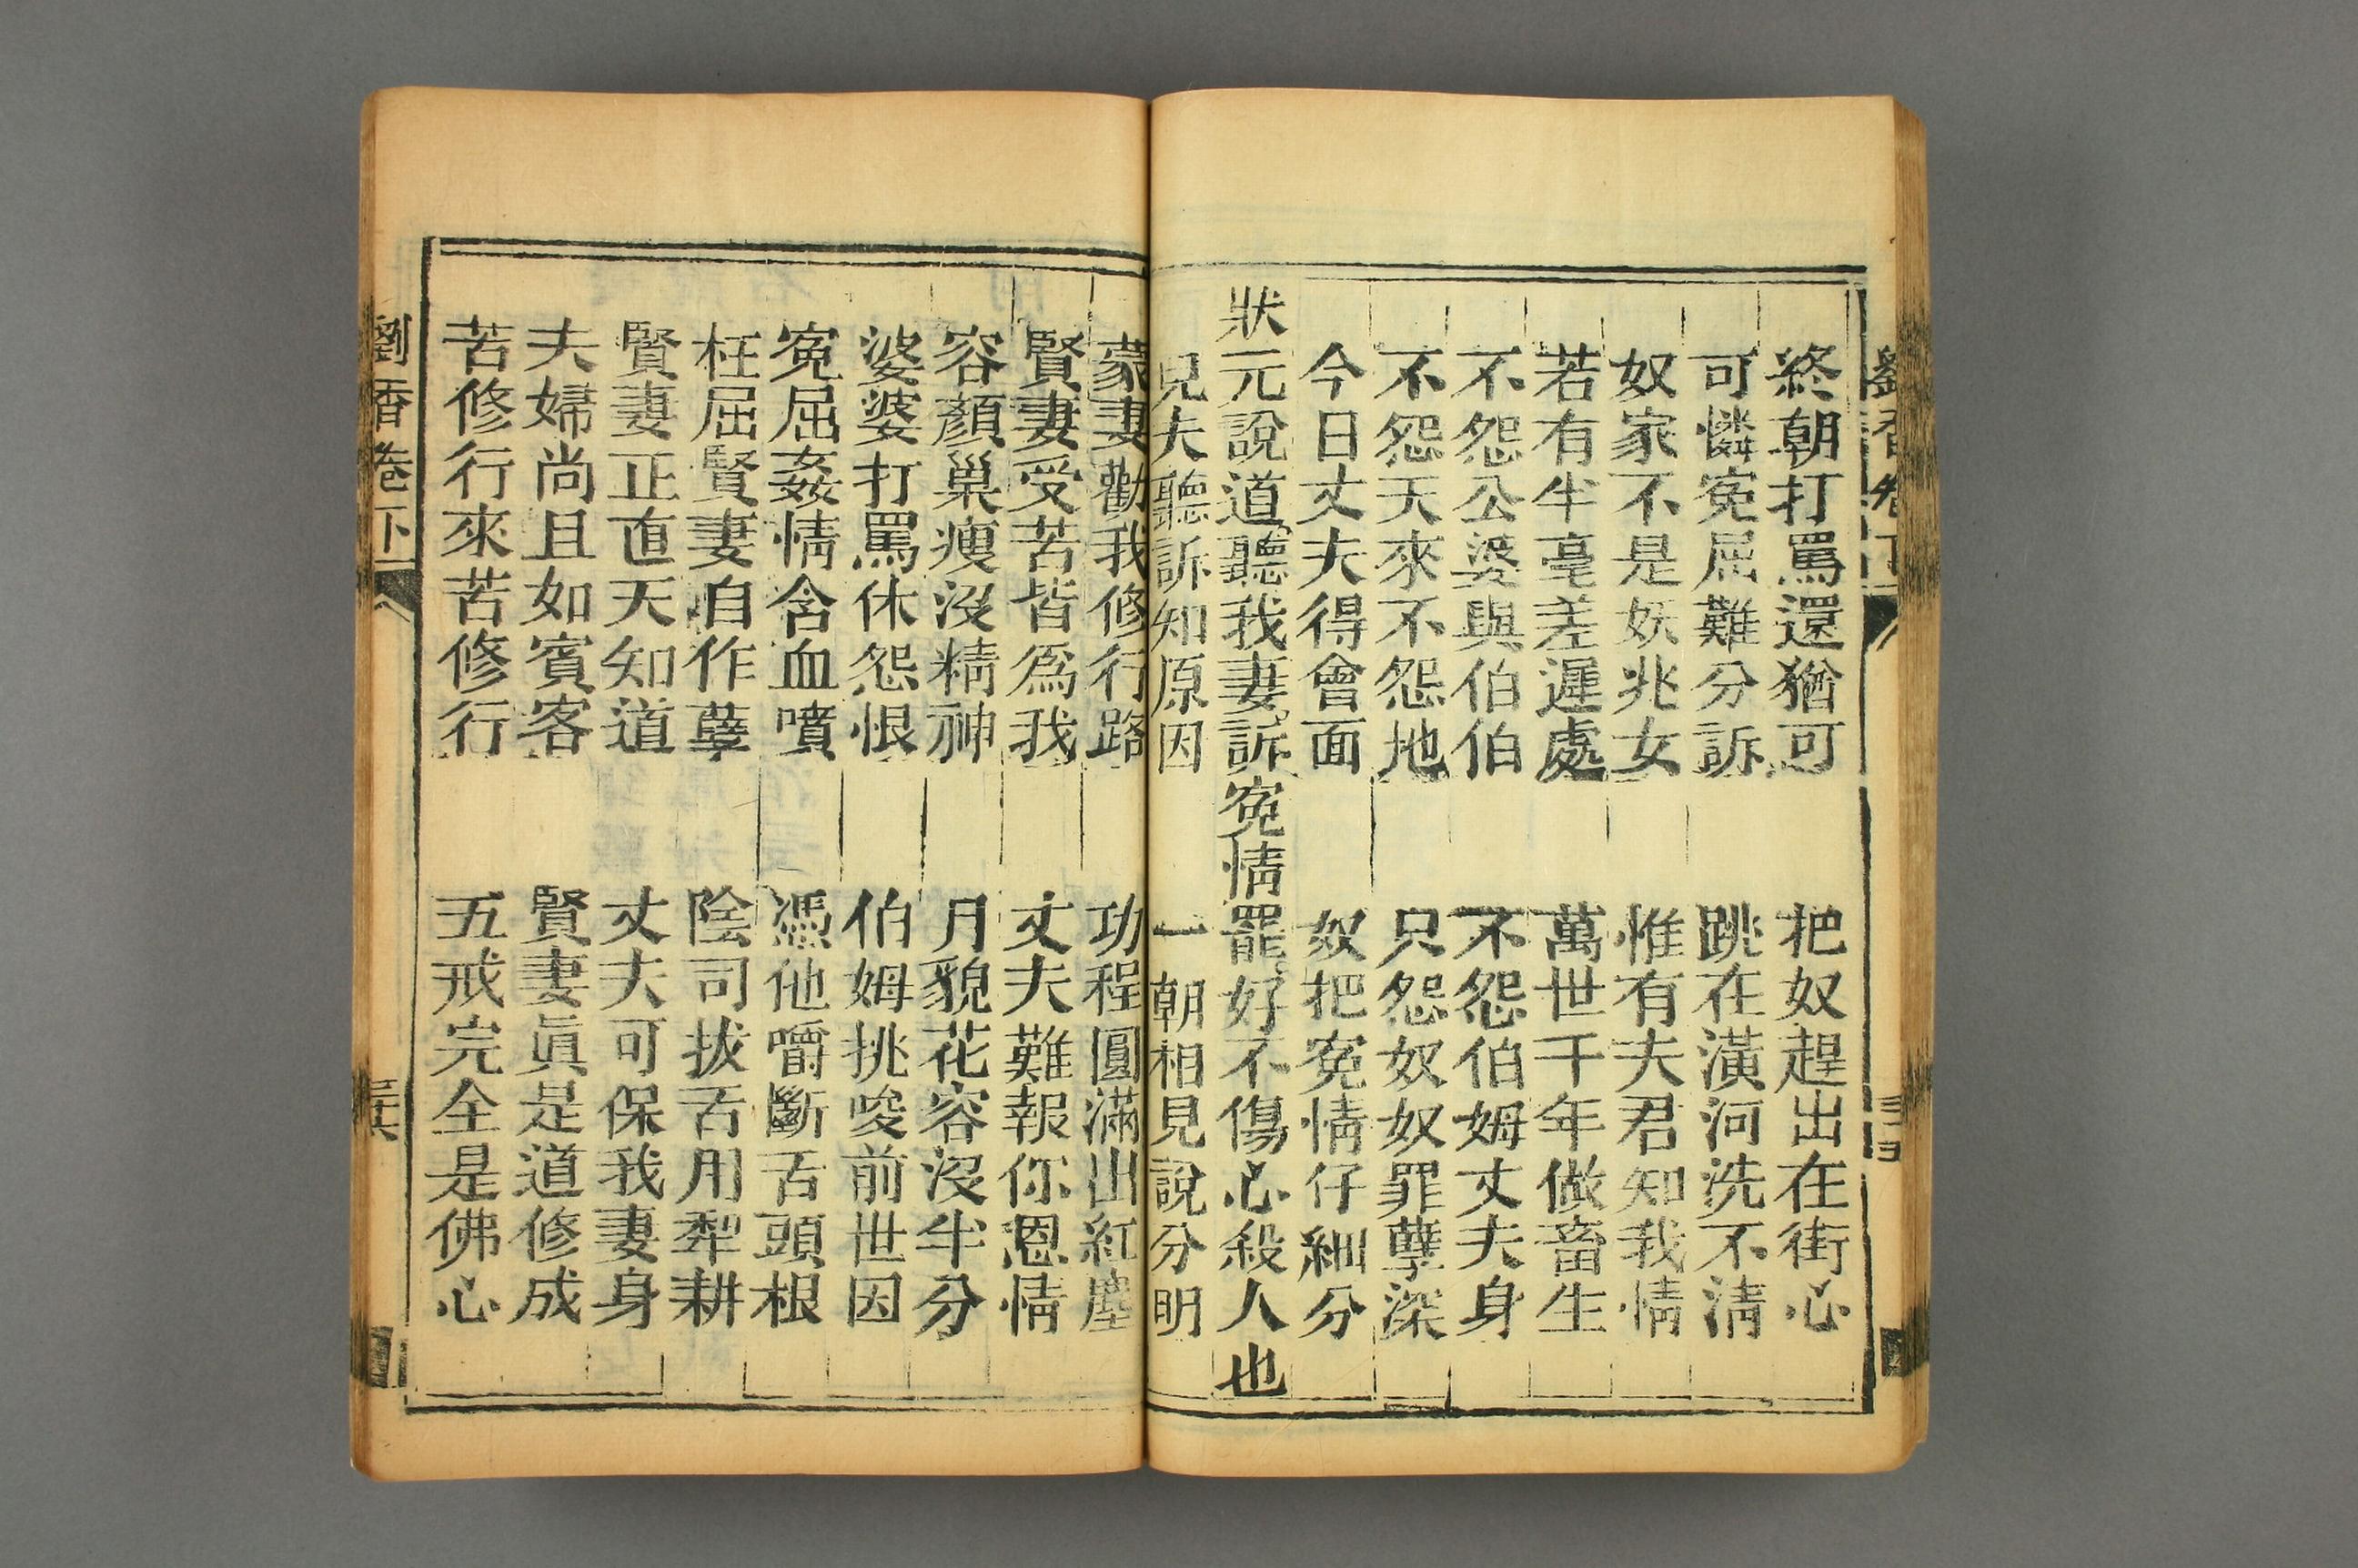 終朝打罵還猶可　把奴趕出在街心
可憐寃屈難分訴　跳在潢河洗不淸
奴家不是妖兆女　惟有夫君知我情
若有半毫差遲處　萬世千年做畜生
不怨公婆與伯伯　不怨伯姆丈夫身
不怨天來不怨地　只怨奴奴罪孽深
今日丈夫得會面　奴把寃情仔細分
狀元說道聽我妻訴寃情罷好不傷心殺人也
兒夫聽訴知原因　一朝相見說分明
蒙妻勸我修行路　功程圓滿出紅塵
賢妻受苦皆爲我　丈夫難報你恩情
容顏巢瘦沒精神　月貌花容沒半分
婆婆打罵休怨恨　伯姆挑唆前世因
寃屈姦情含血噴　憑他嚼斷舌頭根
枉屈賢妻自作孽　陰司拔舌用犁耕
賢妻正直天知道　丈夫可保我妻身
夫婦尚且如賓客　賢妻眞是道修成
苦修行來苦修行　五戒完全是佛心
劉香卷下
三六